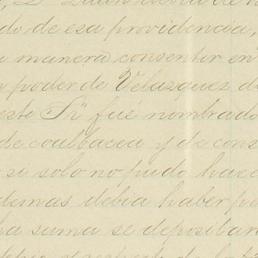 do de esa providencia,
manera consentir en
poder de Velazquez d
este Sr. fue nombrado
de coalbacea y de cons
si solo no pudo hace
demas debia haber p
ha suma se depositar